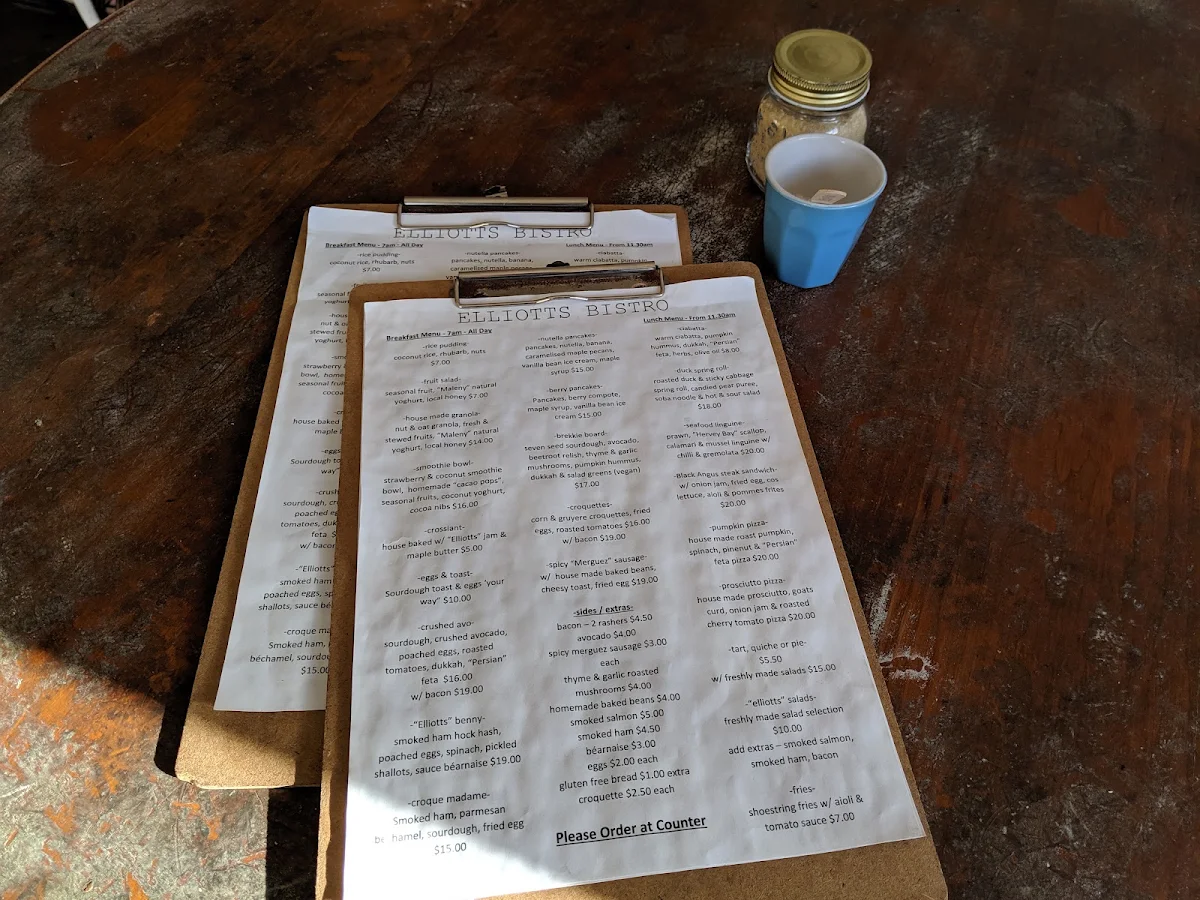 ELLIOTTS BISTRO
Breakfast Menu - 7am - All Day
-rice pudding-
coconut rice, rhubarb, nuts
$7.00
-fruit salad-
seasonal fruit, "Maleny" natural
yoghurt, local honey $7.00
-house made granola-
nut & oat granola, fresh &
stewed fruits, "Maleny" natural
yoghurt, local honey $14.00
-smoothie bowl-
strawberry & coconut smoothie
bowl, homemade "cacao pops",
seasonal fruits, coconut yoghurt,
cocoa nibs $16.00
-crossiant-
house baked w/ "Elliotts" jam &
maple butter $5.00
-eggs & toast-
Sourdough toast & eggs 'your
way" $10.00
-crushed avo-
sourdough, crushed avocado,
poached eggs, roasted
tomatoes, dukkah, "Persian"
feta $16.00
w/ bacon $19.00
-"Elliotts" benny-
smoked ham hock hash,
poached eggs, spinach, pickled
shallots, sauce béarnaise $19.00
-croque madame-
Smoked ham, parmesan
be hamel, sourdough, fried egg
$15.00
-nutella pancakes-
pancakes, nutella, banana,
caramelised maple pecans,
vanilla bean ice cream, maple
syrup $15.00
-berry pancakes-
Pancakes, berry compote,
maple syrup, vanilla bean ice
cream $15.00
-brekkie board-
seven seed sourdough, avocado,
beetroot relish, thyme & garlic
mushrooms, pumpkin hummus,
dukkah & salad greens (vegan)
$17.00
-croquettes-
corn & gruyere croquettes, fried
eggs, roasted tomatoes $16.00
w/ bacon $19.00
-spicy "Merguez" sausage-
w/ house made baked beans,
cheesy toast, fried egg $19.00
-sides / extras-
bacon – 2 rashers $4.50
avocado $4.00
spicy merguez sausage $3.00
each
thyme & garlic roasted
mushrooms $4.00
homemade baked beans $4.00
smoked salmon $5.00
smoked ham $4.50
béarnaise $3.00
eggs $2.00 each
gluten free bread $1.00 extra
croquette $2.50 each
Please Order at Counter
Lunch Menu - From 11.30am
-ciabatta-
warm ciabatta, pumpkin
hummus, dukkah, "Persian"
feta, herbs, olive oil $8.00
-duck spring roll-
roasted duck & sticky cabbage
spring roll, candied pear puree,
soba noodle & hot & sour salad
$18.00
-seafood linguine-
prawn, "Hervey Bay" scallop,
calamari & mussel linguine w/
chilli & gremolata $20.00
-Black Angus steak sandwich-
w/ onion jam, fried egg, cos
lettuce, aioli & pommes frites
$20.00
-pumpkin pizza-
house made roast pumpkin,
spinach, pinenut & "Persian"
feta pizza $20.00
-prosciutto pizza-
house made prosciutto, goats
curd, onion jam & roasted
cherry tomato pizza $20.00
-tart, quiche or pie-
$5.50
w/ freshly made salads $15.00
-"elliotts" salads-
freshly made salad selection
$10.00
add extras – smoked salmon,
smoked ham, bacon
-fries-
shoestring fries w/ aioli &
tomato sauce $7.00
ELLIOTTS BISTRO
Breakfast Menu - 7am - All Day
-rice pudding-
coconut rice, rhubarb, nuts
$7.00
seasonal
yoghurt
-hous
nut & oa
stewed fru
yoghurt,
-smo
strawberry
bowl, home
seasonal fruit
cocoa
-cr
house baked
maple
-eggs
Sourdough to
way"
-crush
sourdough, cr
poached eg
tomatoes, duk
feta $
w/ bacon
-"Elliotts"
smoked ham
poached eggs, sp
shallots, sauce bé
-croque ma
Smoked ham,
béchamel, sourdou
$15.00
-nutella pancakes-
pancakes, nutella, banana,
caramelised maple pecans
Lunch Menu - From 11.30am
-ciabatta-
warm ciabatta, pumpkin